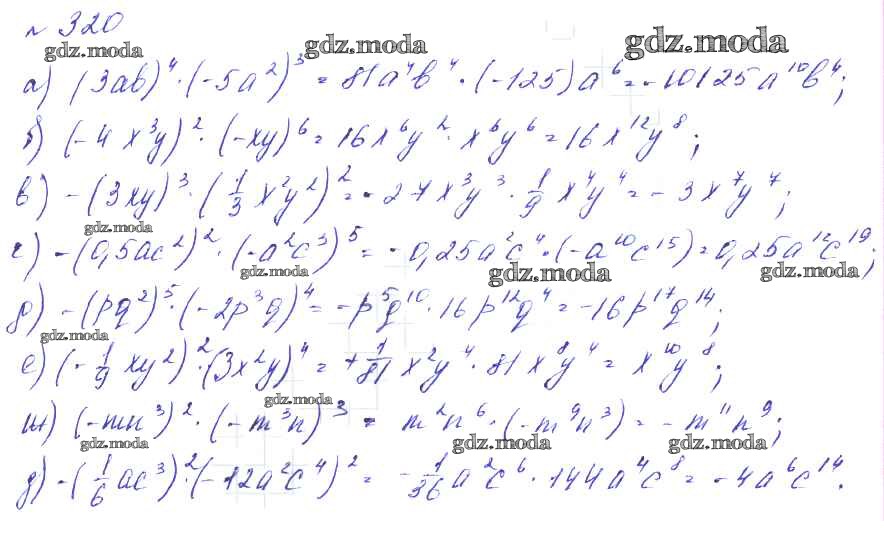 № 320
gdz.moda gdz.moda gdz.moda
а) (3ab)⁴ · (-5a²)³ = 81a⁴b⁴ · (-125)a⁶ = -10125a¹⁰b⁴;
б) (-4x³y)² · (-xy)⁶ = 16x⁶y² · x⁶y⁶ = 16x¹²y⁸;
в) -(3xy)³ · (1/3 x²y²)² = -27x³y³ · 1/9 x⁴y⁴ = -3x⁷y⁷;
gdz.moda
г) -(0,5ac²)² · (-a²c³)⁵ = -0,25a²c⁴ · (-a¹⁰c¹⁵) = 0,25a¹²c¹⁹;
gdz.moda gdz.moda gdz.moda
д) -(pq²)⁵ · (-2p³q)⁴ = -p⁵q¹⁰ · 16p¹²q⁴ = -16p¹⁷q¹⁴;
gdz.moda
е) (-1/9 xy²)² · (3x²y)⁴ = +1/81 x²y⁴ · 81x⁸y⁴ = x¹⁰y⁸;
gdz.moda
ж) (-mn³)² · (-m³n)³ = m²n⁶ · (-m⁹n³) = -m¹¹n⁹;
gdz.moda gdz.moda gdz.moda
з) -(1/6 ac³)² · (-12a²c⁴)² = -1/36 a²c⁶ · 144a⁴c⁸ = -4a⁶c¹⁴.